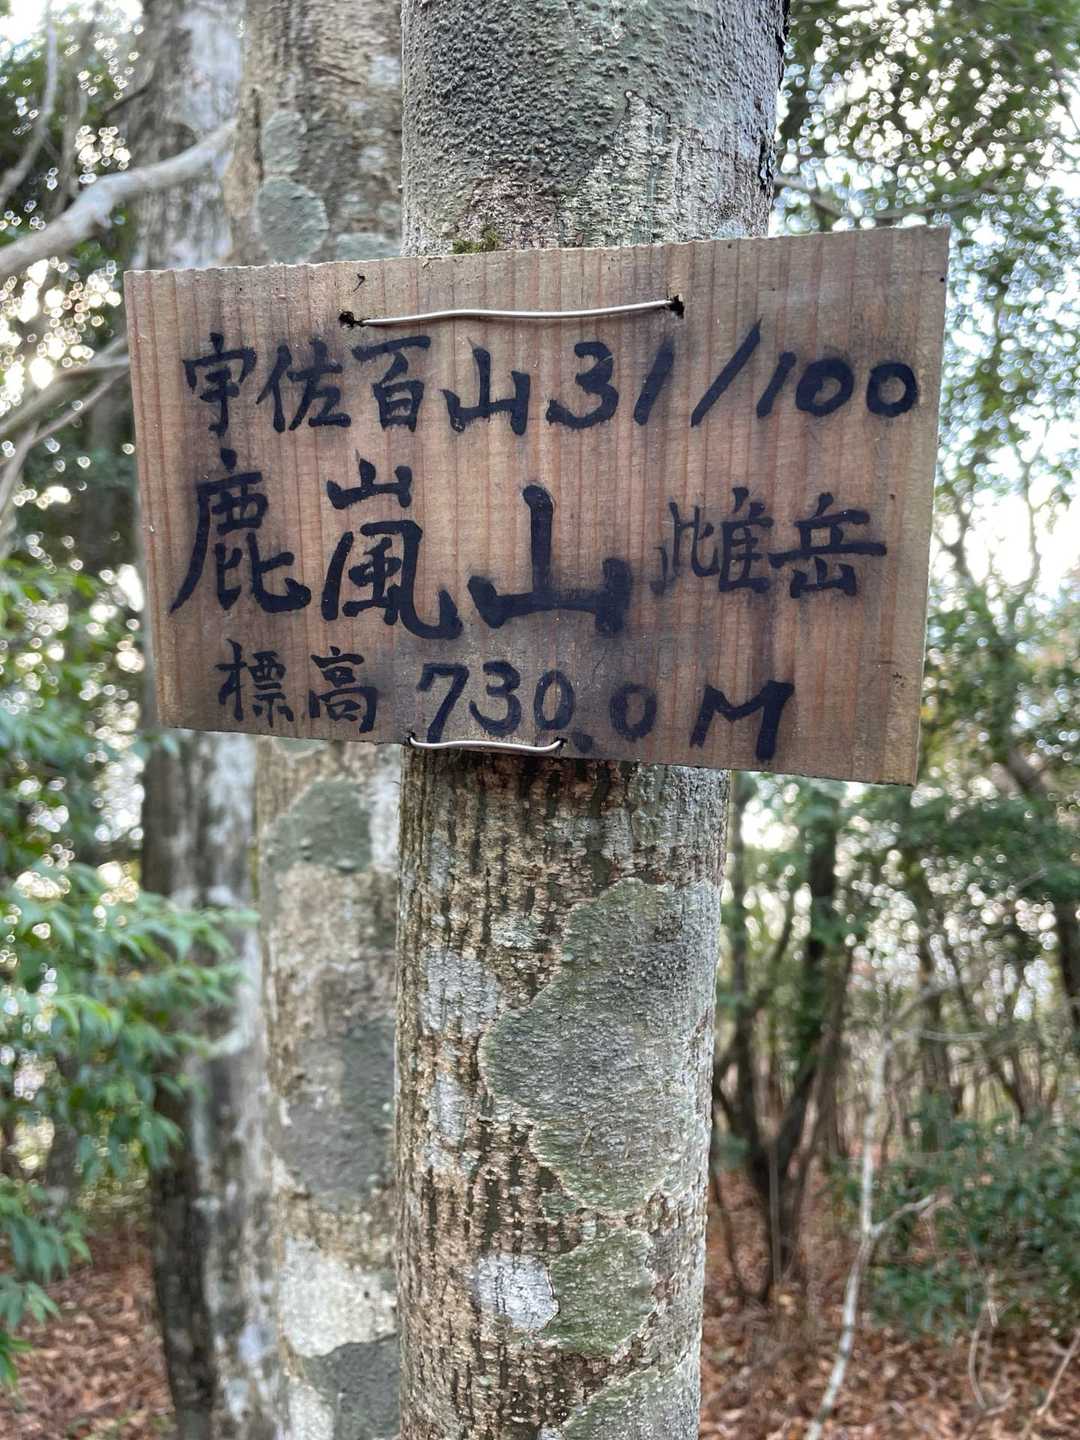 宇佐百山31/100
鹿嵐山 雌岳
標高 730.0M